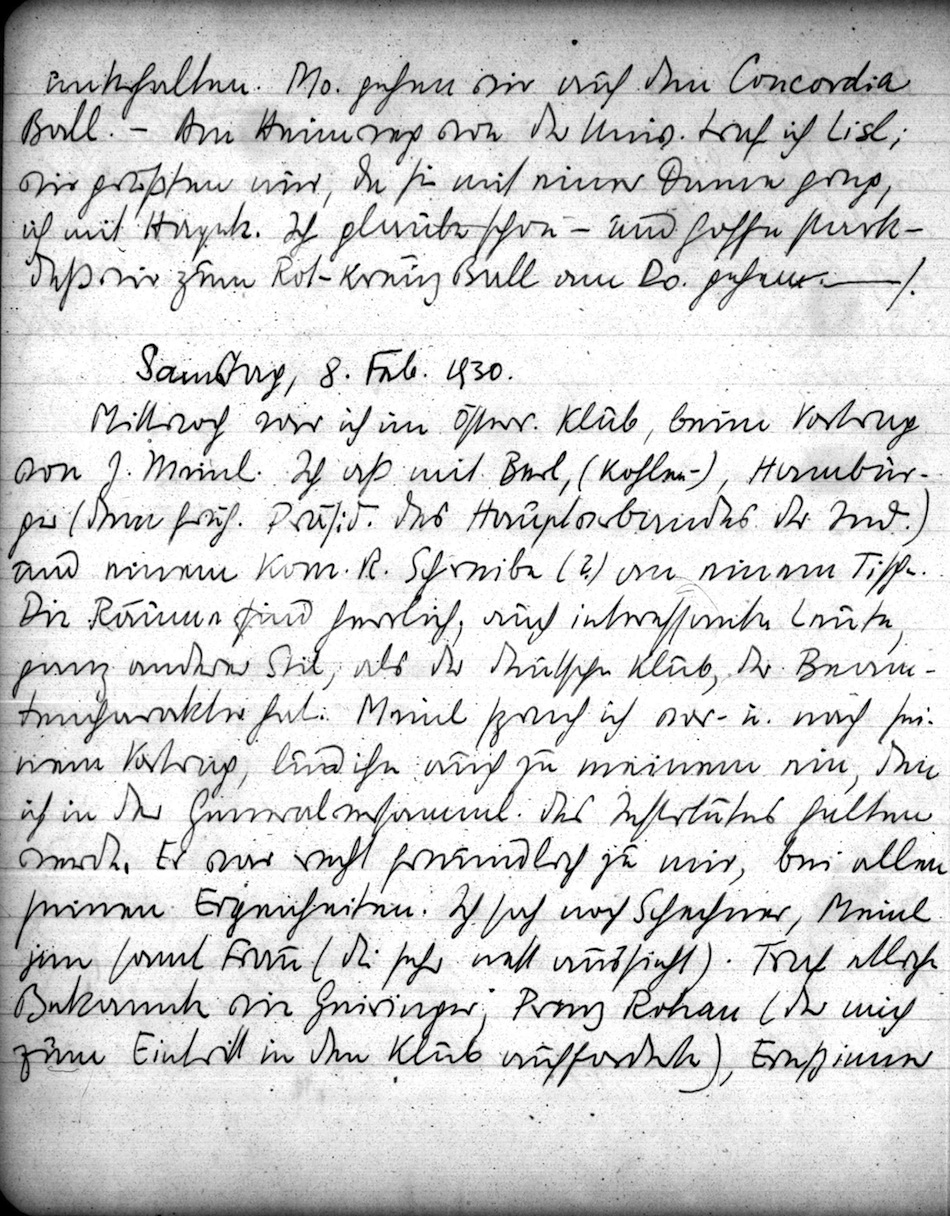 unterhalten. Mo. gehen wir auf den Concordia
Ball. – Am Heimweg von der Univ. traf ich Lisl;
wir grüßten nur, da sie mit einer Dame ging,
ich mit Hayek. Ich glaube schon – und hoffe stark –
daß wir zum Rot-Kreuz Ball am Do. gehen. –/.
Samstag, 8. Feb. 1930.
Mittwoch war ich im Österr. Klub, beim Vortrag
von J. Meinl. Ich aß mit Berl, (Kohlen-), Hambur-
ger (dem früh. Präsid. des Hauptverbandes der Ind.)
und einem Kom. R. Schreiber (?) an einem Tisch.
Die Räume sind herrlich, auch interessante Leute,
ganz anderer Stil, als der deutsche Klub, der Beam-
tencharakter hat. Meinl sprach ich vor- u. nach sei-
nem Vortrag, lud ihn auch zu meinem ein, den
ich in der Generalversamml. des Institutes halten
werde. Er war recht freundlich zu mir, bei allen
seinen Eigenheiten. Ich sah noch Schechner, Meinl
jun samt Frau (die sehr nett aussieht). Traf etliche
Bekannte wie Geiringer, Prinz Rohan (der mich
zum Eintritt in den Klub aufforderte),